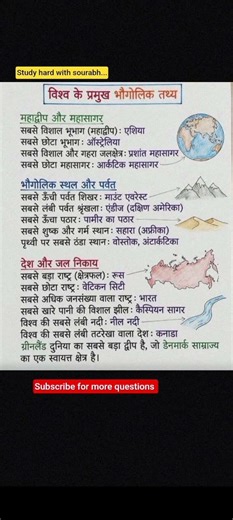 Study hard with sourabh...
विश्व के प्रमुख भौगोलिक तथ्य
महाद्वीप और महासागर
सबसे विशाल भूभाग (महाद्वीप): एशिया
सबसे छोटा भूभाग: ऑस्ट्रेलिया
सबसे विशाल और गहरा जलक्षेत्र: प्रशांत महासागर
सबसे छोटा महासागर: आर्कटिक महासागर
भौगोलिक स्थल और पर्वत
सबसे ऊँची पर्वत शिखर: माउंट एवरेस्ट
सबसे लंबी पर्वत श्रृंखला: एंडीज (दक्षिण अमेरिका)
सबसे ऊँचा पठार: पामीर का पठार
सबसे शुष्क और गर्म स्थान: सहारा (अफ्रीका)
पृथ्वी पर सबसे ठंडा स्थान: वोस्तोक, अंटार्कटिका
देश और जल निकाय
सबसे बड़ा राष्ट्र (क्षेत्रफल): रूस
सबसे छोटा राष्ट्र: वेटिकन सिटी
सबसे अधिक जनसंख्या वाला राष्ट्र: भारत
सबसे खारे पानी की विशाल झील: कैस्पियन सागर
विश्व की सबसे लंबी नदी: नील नदी
विश्व की सबसे लंबी तटरेखा वाला देश: कनाडा
ग्रीनलैंड दुनिया का सबसे बड़ा द्वीप है, जो डेनमार्क साम्राज्य
का एक स्वायत्त क्षेत्र है।
Subscribe for more questions